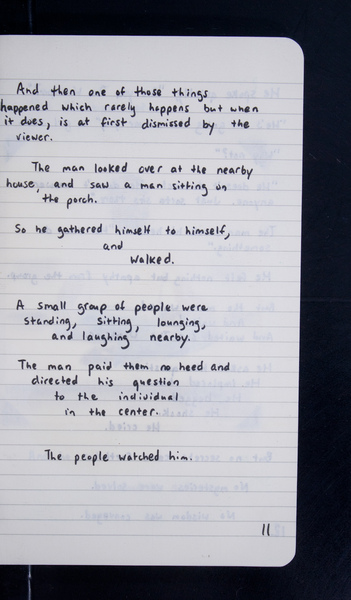 And then one of those things
happened which rarely happens but when
it does, is at first dismissed by the
viewer.
The man looked over at the nearby
house, and saw a man sitting on
the porch.
So he gathered himself to himself,
and
walked.
A small group of people were
standing, sitting, lounging,
and laughing nearby.
The man paid them no heed and
directed his question
to the individual
in the center.
The people watched him.
11